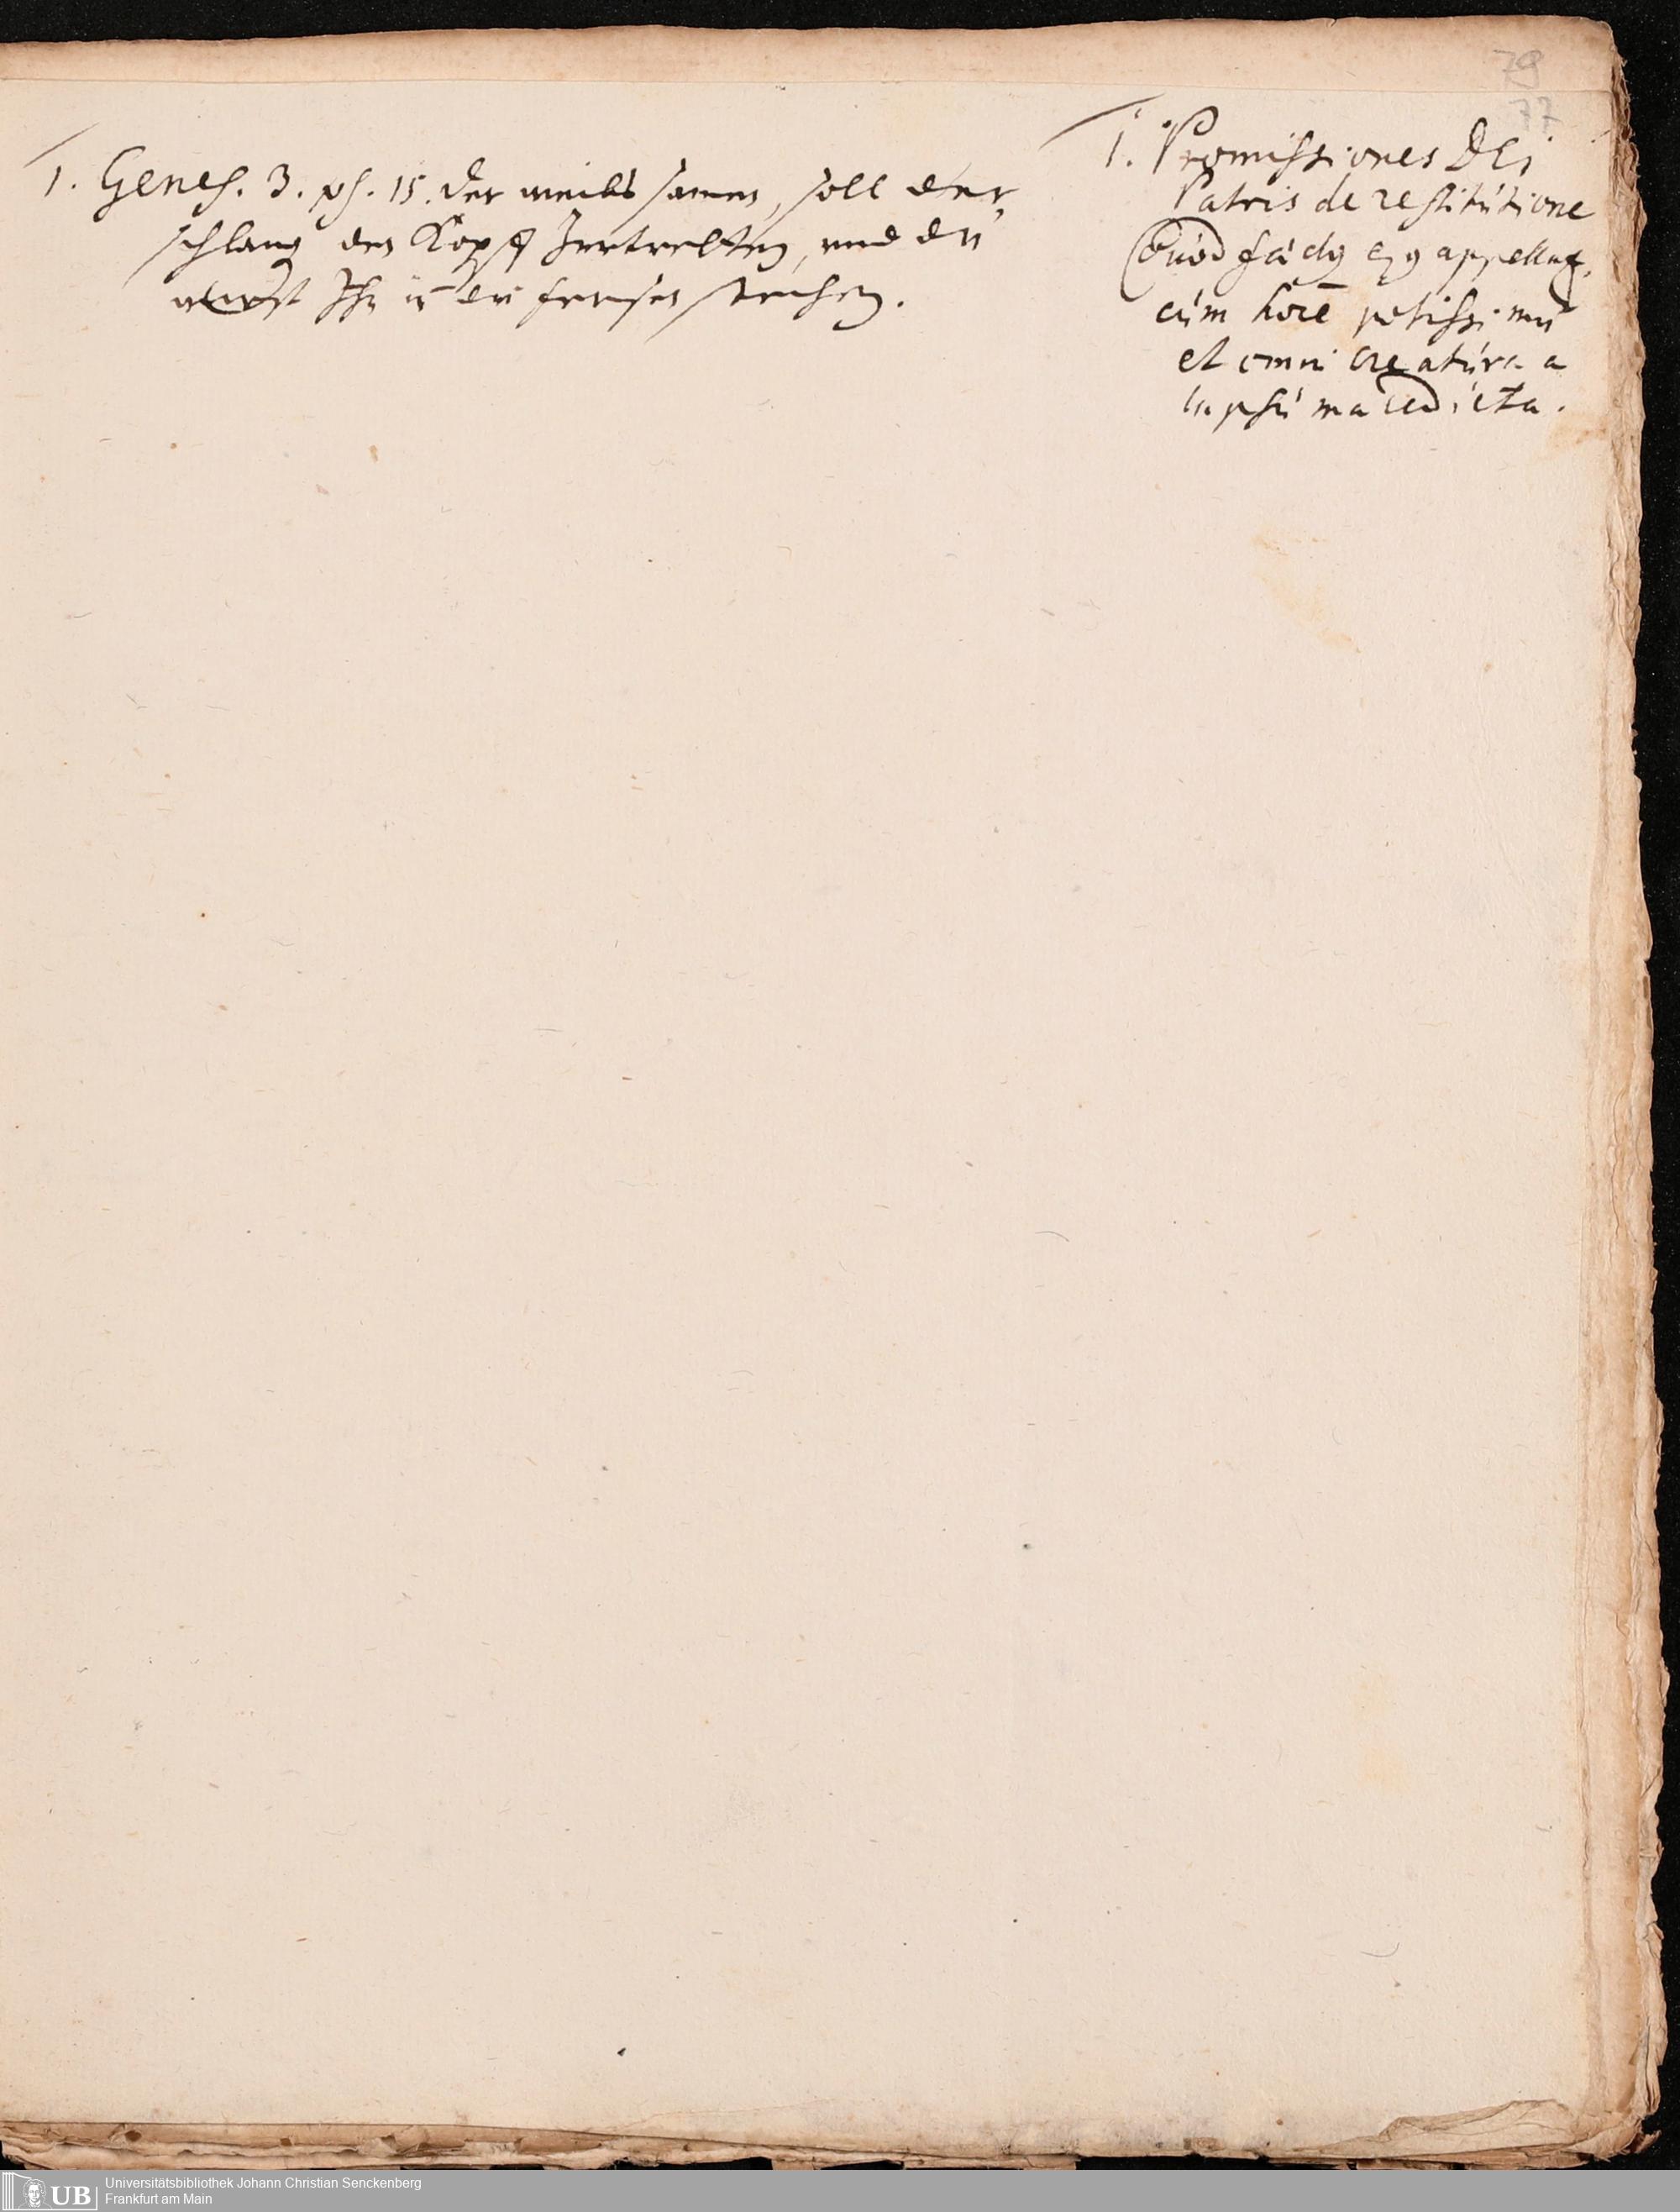 79
77
1. Genes. 3. vs. 15. Der weibs samen, soll der
schlang den Kopff Zertretten, und du
wirst Ihn in die fersen stechen.
1. Promissiones Dei
Patris de restitutione
(quod appellat,
cum hoīe potissimū
et omni creatura a
lapsu maledicta.
Universitätsbibliothek Johann Christian Senckenberg
Frankfurt am Main
UB